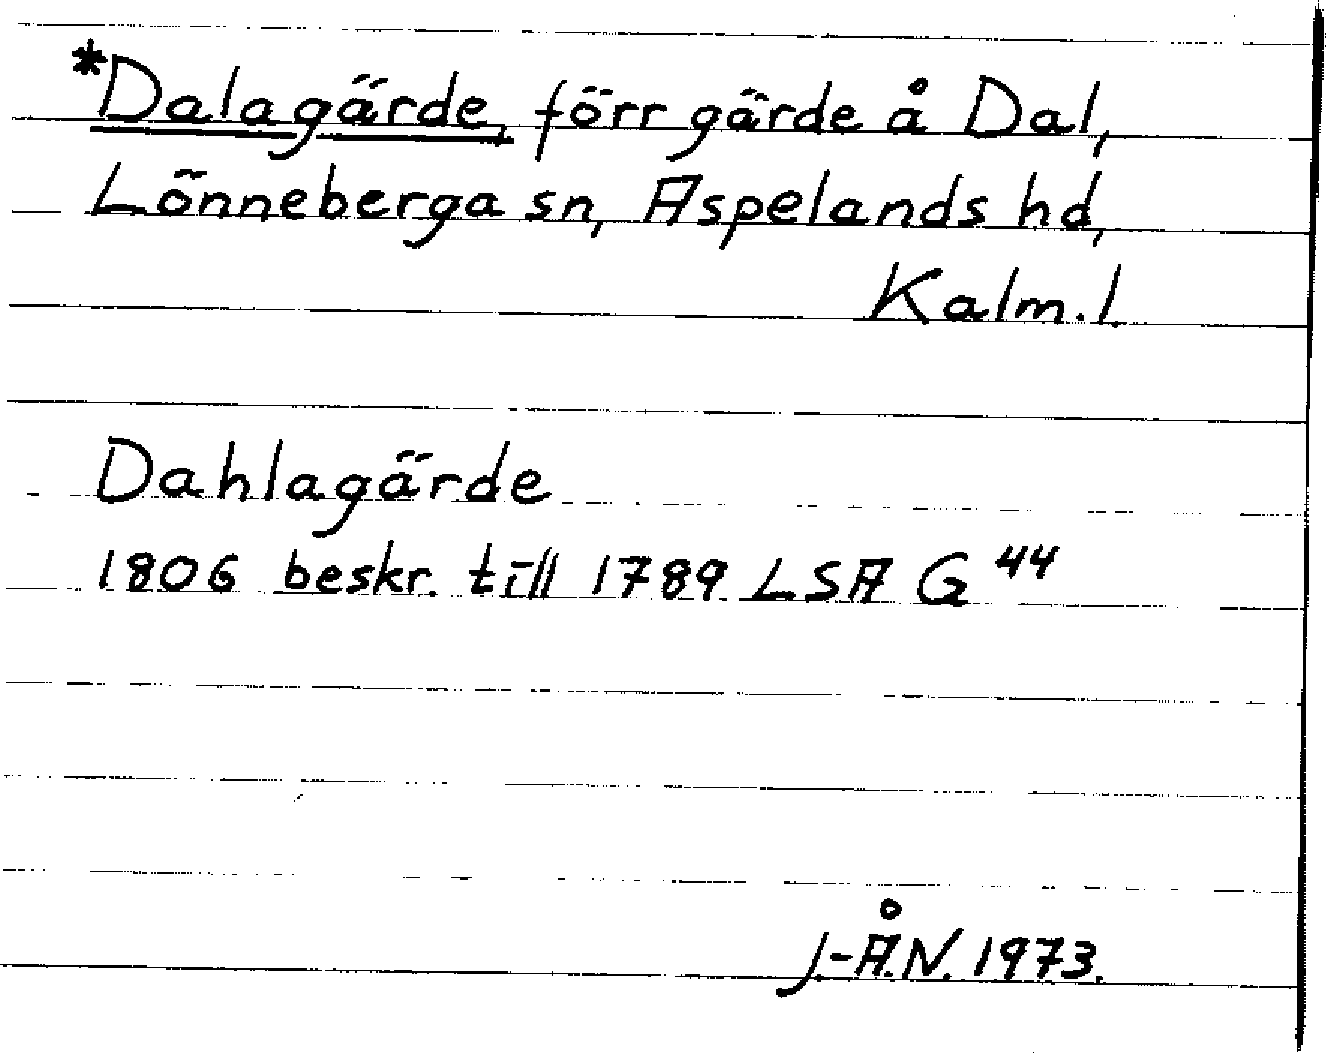 *Dalagärde, förr gärde å Dal,
Lönneberga sn, Aspelands hd,
Kalm.l.
Dahlagärde
1806 beskr. till 1789 LSA G 44
J.-Å.N. 1973.